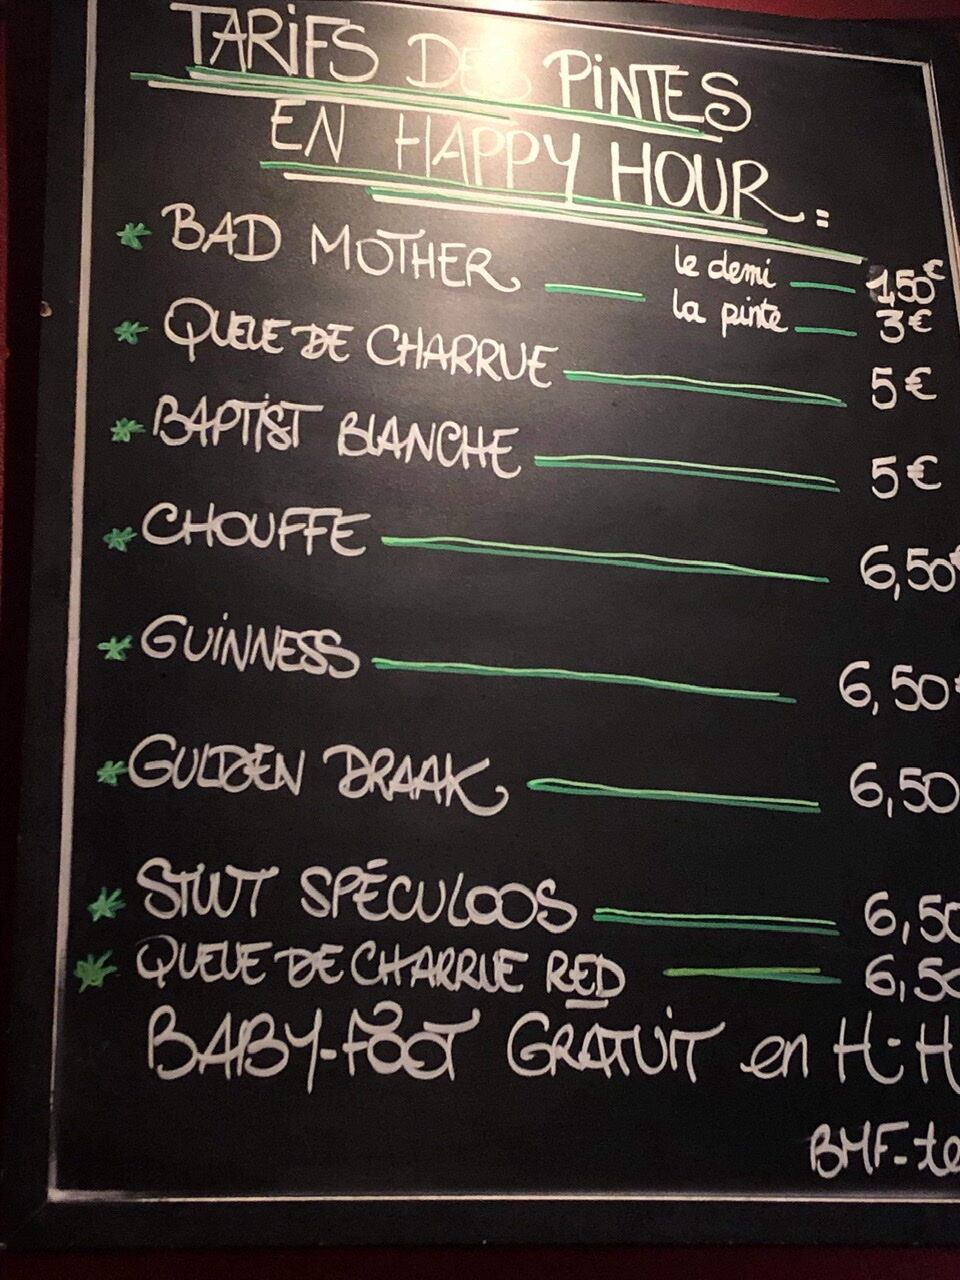 TARIFS DES PINTES
EN HAPPY HOUR :
* BAD MOTHER le demi 1,50€
la pinte 3€
* QUEUE DE CHARRUE 5€
* BAPTIST BLANCHE 5€
* CHOUFFE 6,50€
* GUINNESS 6,50€
* GULDEN DRAAK 6,50
* STUUT SPÉCULOOS 6,50
* QUEUE DE CHARRUE RED 6,50
BABY-FOOT GRATUIT en H-H
BMF-te